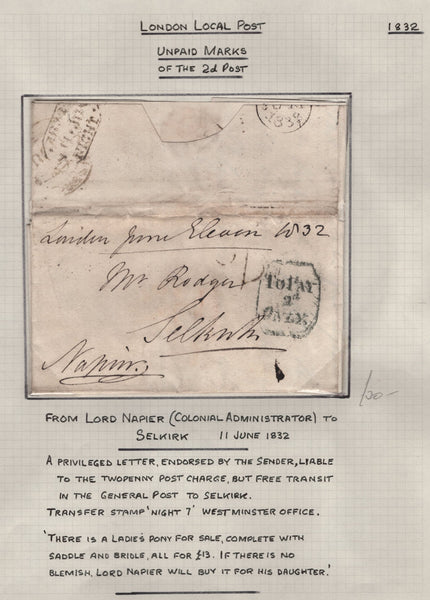 LONDON LOCAL POST
1832
UNPAID MARKS
OF THE 2d POST
NIGHT
183
London June Eleven 1832
Mr Rodger
To PAY
2d
ONLY
Selkirk
Napier
100-
FROM LORD NAPIER (COLONIAL ADMINISTRATOR) TO
SELKIRK 11 JUNE 1832
A PRIVILEGED LETTER, ENDORSED BY THE SENDER, LIABLE
TO THE TWOPENNY POST CHARGE, BUT FREE TRANSIT
IN THE GENERAL POST TO SELKIRK.
TRANSFER STAMP 'NIGHT 7' WESTMINSTER OFFICE.
'THERE IS A LADIE'S PONY FOR SALE, COMPLETE WITH
SADDLE AND BRIDLE, ALL FOR £13. IF THERE IS NO
BLEMISH, LORD NAPIER WILL BUY IT FOR HIS DAUGHTER.'